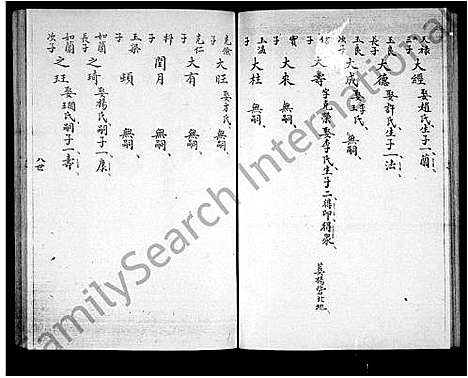 天祿三子 大經 娶趙氏生子一蘭
玉良長子 大德 娶許氏生子一法
玉民次子 大成 娶王氏 無嗣
子 大壽 字克榮 娶李氏生子二得印得眾 葬楊營北地
寶子 大來 無嗣
玉溫子 大柱 無嗣
克儉子 大旺 娶方氏 無嗣
克仁子 大有 無嗣
科子 閏月 無嗣
玉梁子 頓 無嗣
如蘭長子 之琦 娶楊氏嗣子一康
如蘭次子 之珏 娶氏嗣子一壽
FamilySearch International